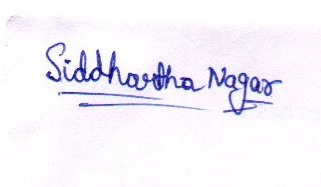 Siddhartha Nagar